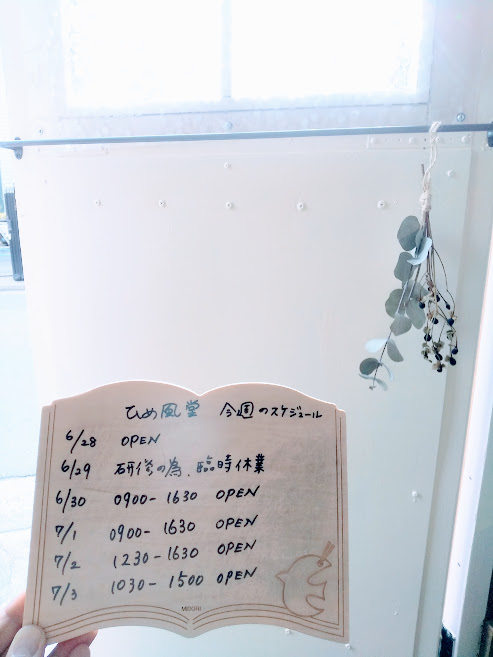 ひめ風堂 今週のスケジュール
6/28 OPEN
6/29 研修の為、臨時休業
6/30 0900-1630 OPEN
7/1 0900-1630 OPEN
7/2 1230-1630 OPEN
7/3 1030-1500 OPEN
MIDORI